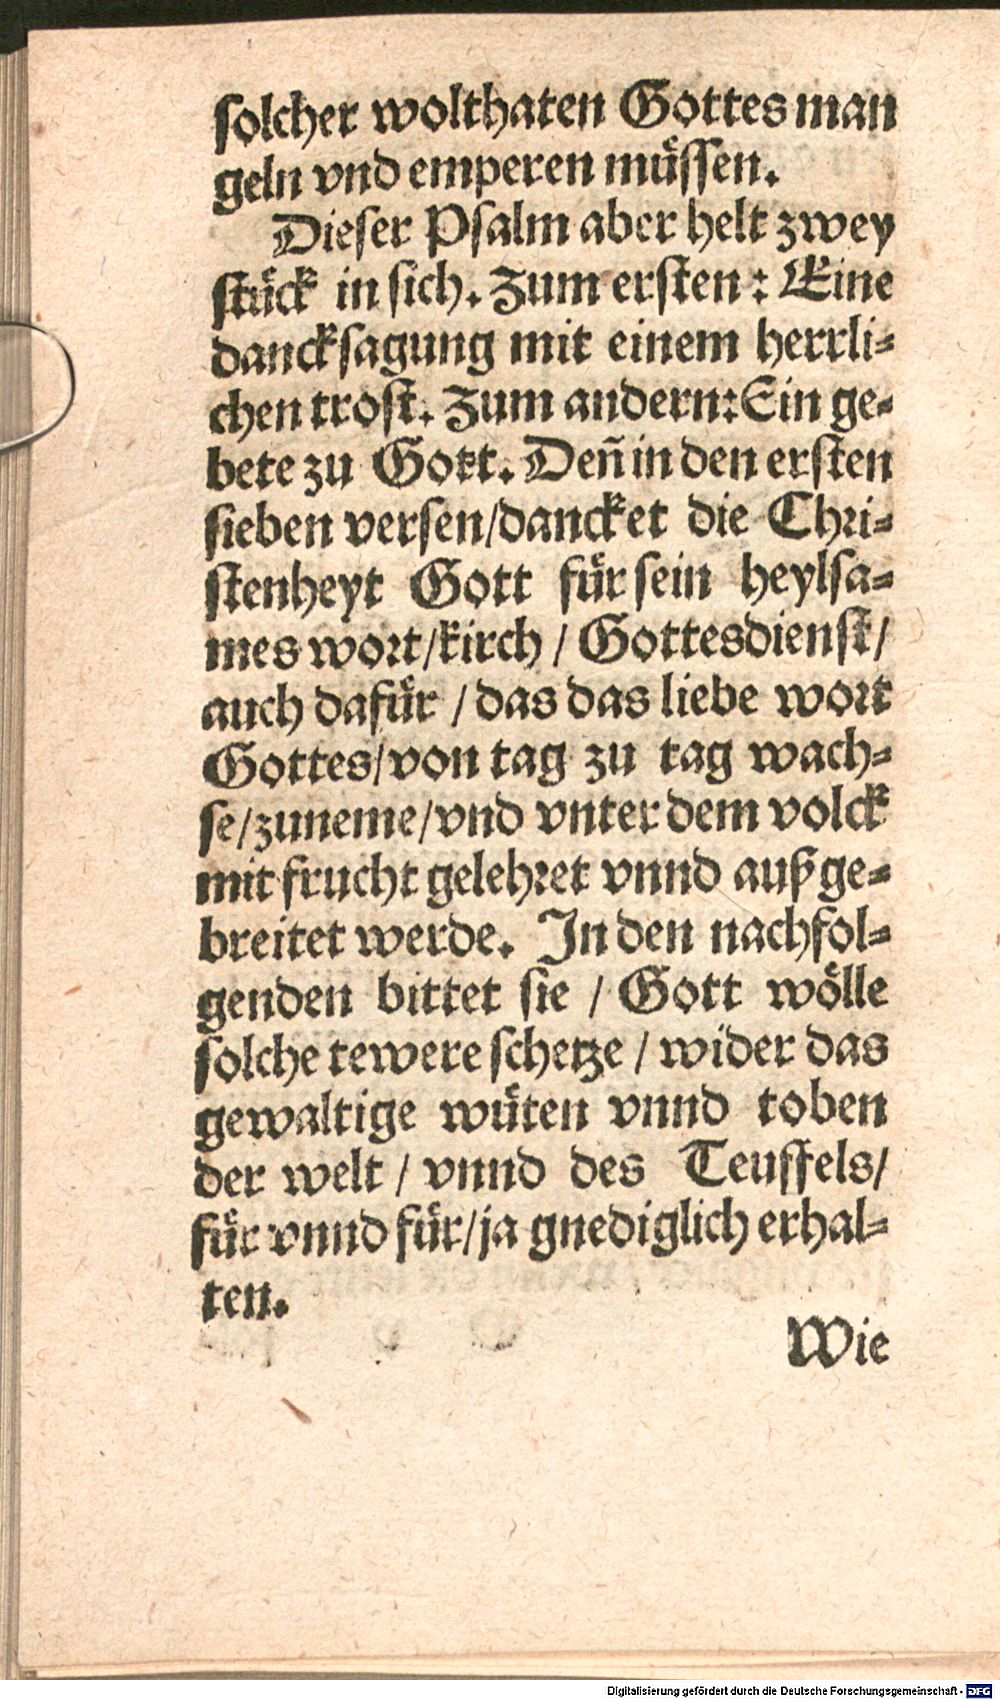 solcher wolthaten Gottes man
geln vnd emperen müssen.
Dieser Psalm aber helt zwey
stück in sich. Zum ersten: Eine
dancksagung mit einem herrli-
chen trost. Zum andern: Ein ge-
bete zu Gott. Deñ in den ersten
sieben versen/dancket die Chri-
stenheyt Gott für sein heylsa-
mes wort/kirch / Gottesdienst/
auch dafür / das das liebe wort
Gottes/von tag zu tag wach-
se/zuneme/vnd vnter dem volck
mit frucht gelehret vnnd außge-
breitet werde. In den nachfol-
genden bittet sie / Gott wölle
solche tewere schetze / wider das
gewaltige wüten vnnd toben
der welt / vnnd des Teuffels/
für vnnd für/ja gnediglich erhal-
ten.
Wie
Digitalisierung gefördert durch die Deutsche Forschungsgemeinschaft - DFG